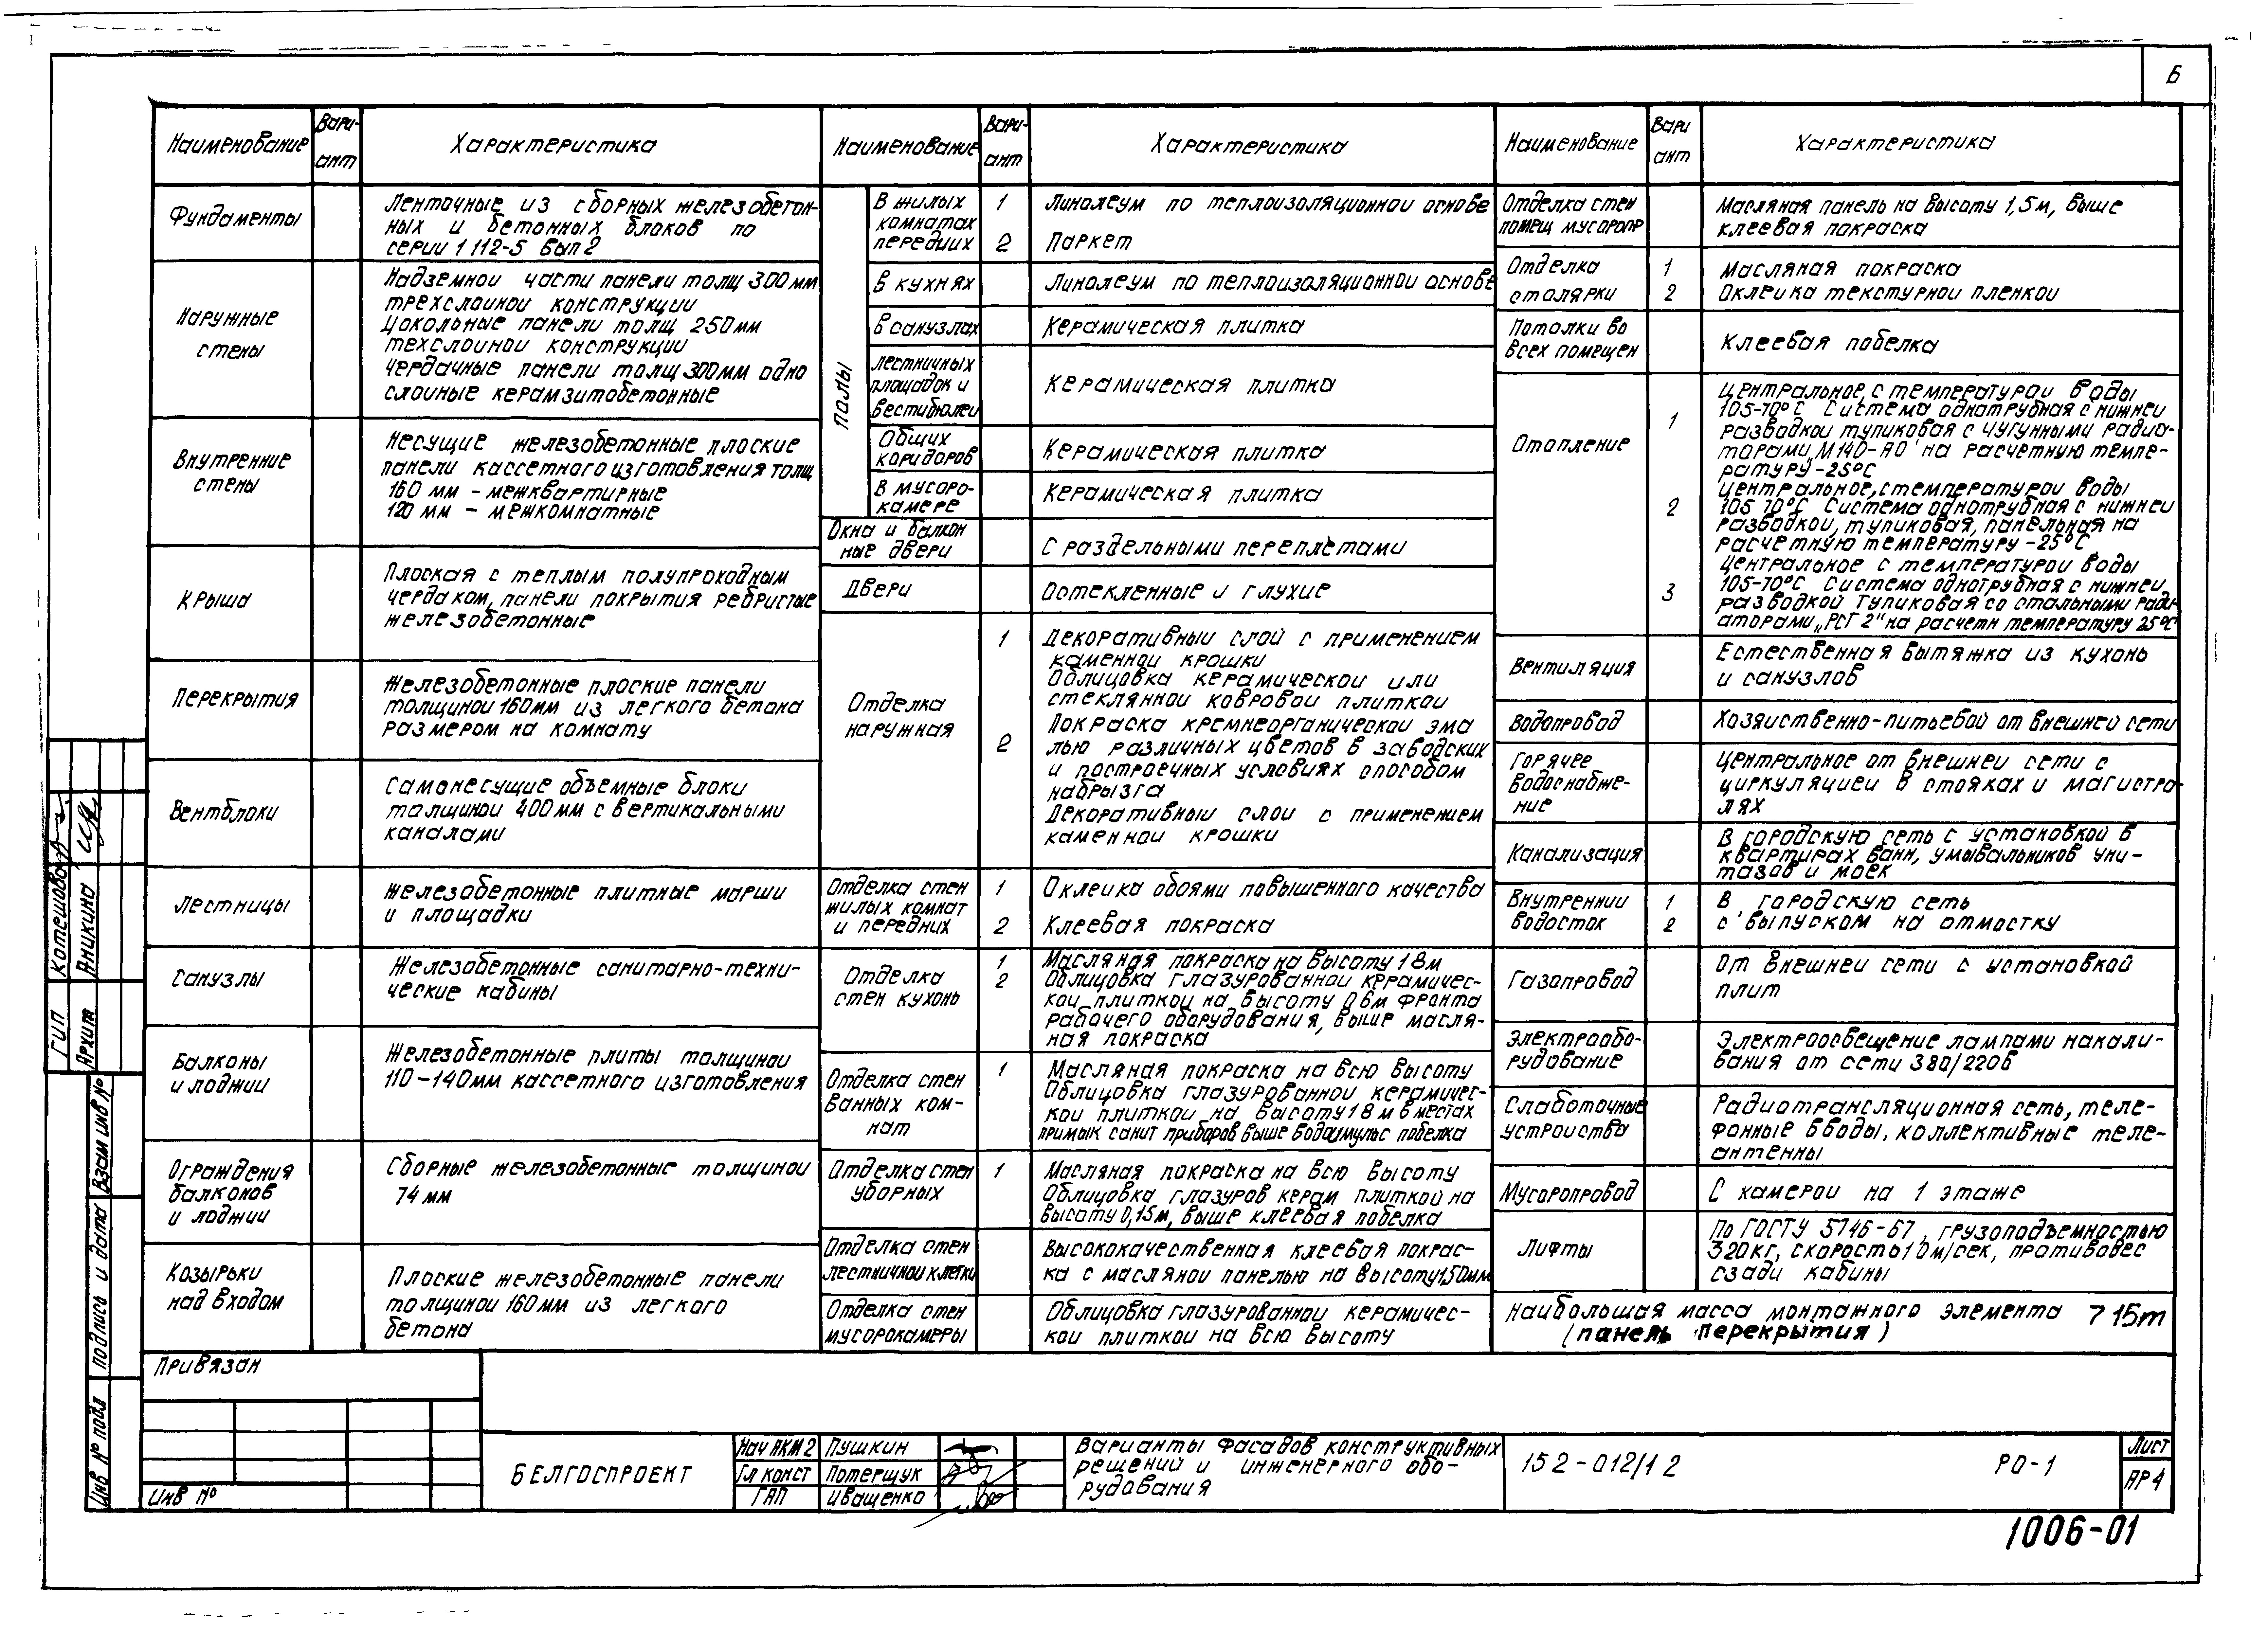 6
Наименование
Вари-
ант
Характеристика
Фундаменты
Ленточные из сборных железобетон-
ных и бетонных блоков по
серии 1 112-5 Вып 2
Наружные
стены
Надземной части панели толщ 300 мм
трехслойной конструкции
Цокольные панели толщ 250 мм
техслойной конструкции
Чердачные панели толщ 300 мм одно
слойные керамзитобетонные
Внутренние
стены
Несущие железобетонные плоские
панели кассетного изготовления толщ
160 мм - межквартирные
120 мм - межкомнатные
Крыша
Плоская с теплым полупроходным
чердаком, панели покрытия ребристые
железобетонные
Перекрытия
Железобетонные плоские панели
толщиной 160мм из легкого бетона
размером на комнату
Вентблоки
Самонесущие объемные блоки
толщиной 400 мм с вертикальными
каналами
Лестницы
Железобетонные плитные марши
и площадки
Санузлы
Железобетонные санитарно-техни-
ческие кабины
Балконы
и лоджии
Железобетонные плиты толщиной
110-140мм кассетного изготовления
Ограждения
балконов
и лоджии
Сборные железобетонные толщиной
74 мм
Козырьки
над входом
Плоские железобетонные панели
толщиной 160 мм из легкого
бетона
Наименование
Вари-
ант
Характеристика
Полы
В жилых
комнатах
передних
1
Линолеум по теплоизоляционной основе
2
Паркет
В кухнях
Линолеум по теплоизоляционной основе
В санузлах
Керамическая плитка
лестничных
площадок и
вестибюлей
Керамическая плитка
Общих
коридоров
Керамическая плитка
В мусоро-
камере
Керамическая плитка
Окна и балкон
ные двери
С раздельными переплетами
Двери
Остекленные и глухие
Отделка
наружная
1
Декоративный слой с применением
каменной крошки
Облицовка керамической или
стеклянной ковровой плиткой
2
Покраска кремнеорганической эма
лью различных цветов в заводских
и построечных условиях способом
набрызга
Декоративный слой с применением
каменной крошки
Отделка стен
жилых комнат
и передних
1
Оклейка обоями повышенного качества
2
Клеевая покраска
Отделка
стен кухонь
1
Масляная покраска на высоту 1 8 м
2
Облицовка глазурованной керамичес-
кой плиткой на высоту 0 6м фронта
рабочего оборудования, выше масля-
ная покраска
Отделка стен
ванных ком-
нат
1
Масляная покраска на всю высоту
Облицовка глазурованной керамичес-
кой плиткой на высоту 1 8 м в местах
примык санит приборов выше водоэмульс побелка
Отделка стен
уборных
1
Масляная покраска на всю высоту
Облицовка глазуров керам плиткой на
высоту 0,15м, выше клеевая побелка
Отделка стен
лестничной клетки
Высококачественная клеевая покрас-
ка с масляной панелью на высоту 1,50мм
Отделка стен
мусорокамеры
Облицовка глазурованной керамичес-
кой плиткой на всю высоту
Наименование
Вари
ант
Характеристика
Отделка стен
помещ мусоропр
Масляная панель на высоту 1,5м, выше
клеевая покраска
Отделка
столярки
1
Масляная покраска
2
Оклейка текстурной пленкой
Потолки во
всех помещен
Клеевая побелка
Отопление
1
Центральное, с температурой воды
105-70°С Система однотрубная с нижней
разводкой тупиковая с чугунными радиа-
торами „М140-АО" на расчетную темпе-
ратуру -25°С
2
Центральное, с температурой воды
105 70°С Система однотрубная с нижней
разводкой, тупиковая, панельная на
расчетную температуру -25°С
3
Центральное с температурой воды
105-70°С Система однотрубная с нижней
разводкой тупиковая со стальными ради-
аторами „РСГ 2" на расчетн температуру 25°С
Вентиляция
Естественная вытяжка из кухонь
и санузлов
Водопровод
Хозяйственно-питьевой от внешней сети
Горячее
водоснабже-
ние
Центральное от внешней сети с
циркуляцией в стояках и магистра-
лях
Канализация
В городскую сеть с установкой в
квартирах ванн, умывальников уни-
тазов и моек
Внутренний
водосток
1
В городскую сеть
2
с выпуском на отмостку
Газопровод
От внешней сети с установкой
плит
Электрообо-
рудование
Электроосвещение лампами накали-
вания от сети 380/220в
Слаботочные
устройства
Радиотрансляционная сеть, теле-
фонные вводы, коллективные теле-
антенны
Мусоропровод
С камерой на 1 этаже
Лифты
По ГОСТу 5746-67, грузоподъемностью
320кг, скорость 1 0 м/сек, противовес
сзади кабины
Наибольшая масса монтажного элемента 7 15т
(панель перекрытия)
ГИП
Котешова
Архит
Аникина
Взам инв №
Подпись и дата
Инв № подл
Привязан
Инв №
БЕЛГОСПРОЕКТ
Нач АКМ 2
Пушкин
Гл конст
Потерщук
ГАП
Иващенко
Варианты фасадов конструктивных
решений и инженерного обо-
рудования
152-012/1 2
РО-1
Лист
АР4
1006-01